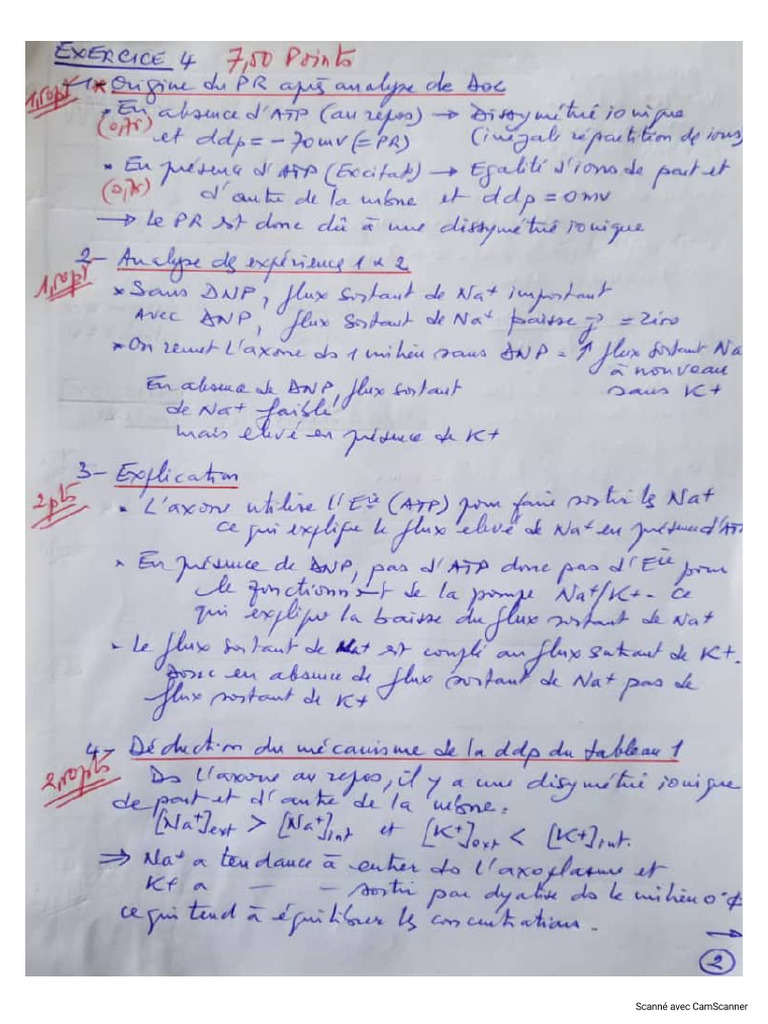 EXERCICE 4 7,50 Points
1,50pt 1* Origine du PR après analyse de Doc
* En absence d'ATP (au repos) → Dissymétrié ionique
(0,75) et ddp = -70mv (= PR) (inégale répartition de ions)
* En présence d'ATP (Excitat) → Egalité d'ions de part et
(0,75) d'autre de la mbne et ddp = 0mv
→ Le PR est donc dû à une dissymétrié ionique
2- Analyse des expérience 1 & 2
1,50pt * Sans DNP, flux sortant de Na+ important
Avec DNP, flux sortant de Na+ baisse → = zéro
* On remet L'axone ds 1 milieu sans DNP = ↑ flux sortant Na
à nouveau
En absence de DNP, flux sortant sans K+
de Na+ faible
mais elevé en présence de K+
3- Explication
2pts • L'axone utilise l'Eie (ATP) pour faire sortir les Na+
ce qui explique le flux elevé de Na+ en présence d'AT
* En présence de DNP, pas d'ATP donc pas d'Eie pour
le fonctionnent de la pompe Na+/K+ - ce
qui explique la baisse du flux sortant de Na+
• Le flux sortant de Na+ est couplé au flux entrant de K+.
Donc en absence de flux sortant de Na+ pas de
flux sortant de K+
4- Déduction du mécanisme de la ddp du tableau 1
2,50pts Ds L'axone au repos, il y a une disymétrié ionique
de part et d'autre de la mbne :
[Na+]ext > [Na+]int et [K+]ext < [K+]int.
⇒ Na+ a tendance à entrer ds L'axoplasme et
K+ a — — sortir par dyalise ds le milieu
ce qui tend à équilibrer les concentrations.
→
2
Scanné avec CamScanner